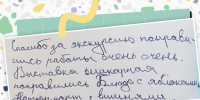 Спасибо за экскурсию понрави-
лись работы очень очень.
Выставка шикарная
понравилось Блюдо с яблоками
Натюрморт с вишнями